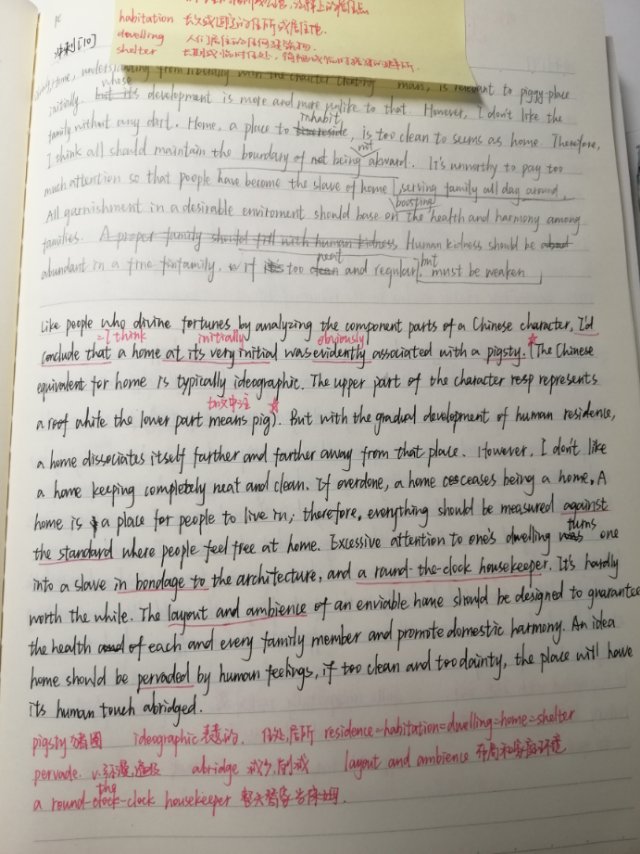 habitation 长久或固定的住所或居住地.
dwelling 人们居住的任何建筑物.
shelter
冲刺[10]
man, is relevant to piggy-place
whose
initially. but its development is more and more unlike to that. However, I don't like the
inhabit
family without any dirt. Home, a place to reside, is too clean to seems as home. Therefore,
not
I think all should maintain the boundary of not being akward. It's unworthy to pay too
much attention so that people have become the slave of home, serving family all day around.
boosting
All garnishment in a desirable enviroment should base on the health and harmony among
families. A proper family should fill with human kidness Human kidness should be
neat but
abundant in a fine family. if too clean and regular, must be weaken
Like people who divine fortunes by analyzing the component parts of a Chinese character, I'd
=I think initially obviously
conclude that a home at its very initial was evidently associated with a pigsty. (The Chinese
equivalent for home is typically ideographic. The upper part of the character resp represents
加文中注
a roof while the lower part means pig). But with the gradual development of human residence,
a home dissociates itself farther and farther away from that place. However, I don't like
a home keeping completely neat and clean. If overdone, a home ceases being a home. A
home is a place for people to live in; therefore, everything should be measured against
turns
the standard where people feel free at home. Excessive attention to one's dwelling one
into a slave in bondage to the architecture, and a round-the-clock housekeeper. It's hardly
worth the while. The layout and ambience of an enviable home should be designed to guarantee
the health and of each and every family member and promote domestic harmony. An idea
home should be pervaded by human feelings, if too clean and too dainty, the place will have
its human touch abridged.
pigsty 猪圈 ideographic 表意的. 住处,居所 residence=habitation=dwelling=home=shelter
pervade. v. 弥漫,遍及 abridge 减少,削减 layout and ambience 布局和家庭环境
the
a round-clock-clock housekeeper 整天替家当保姆.